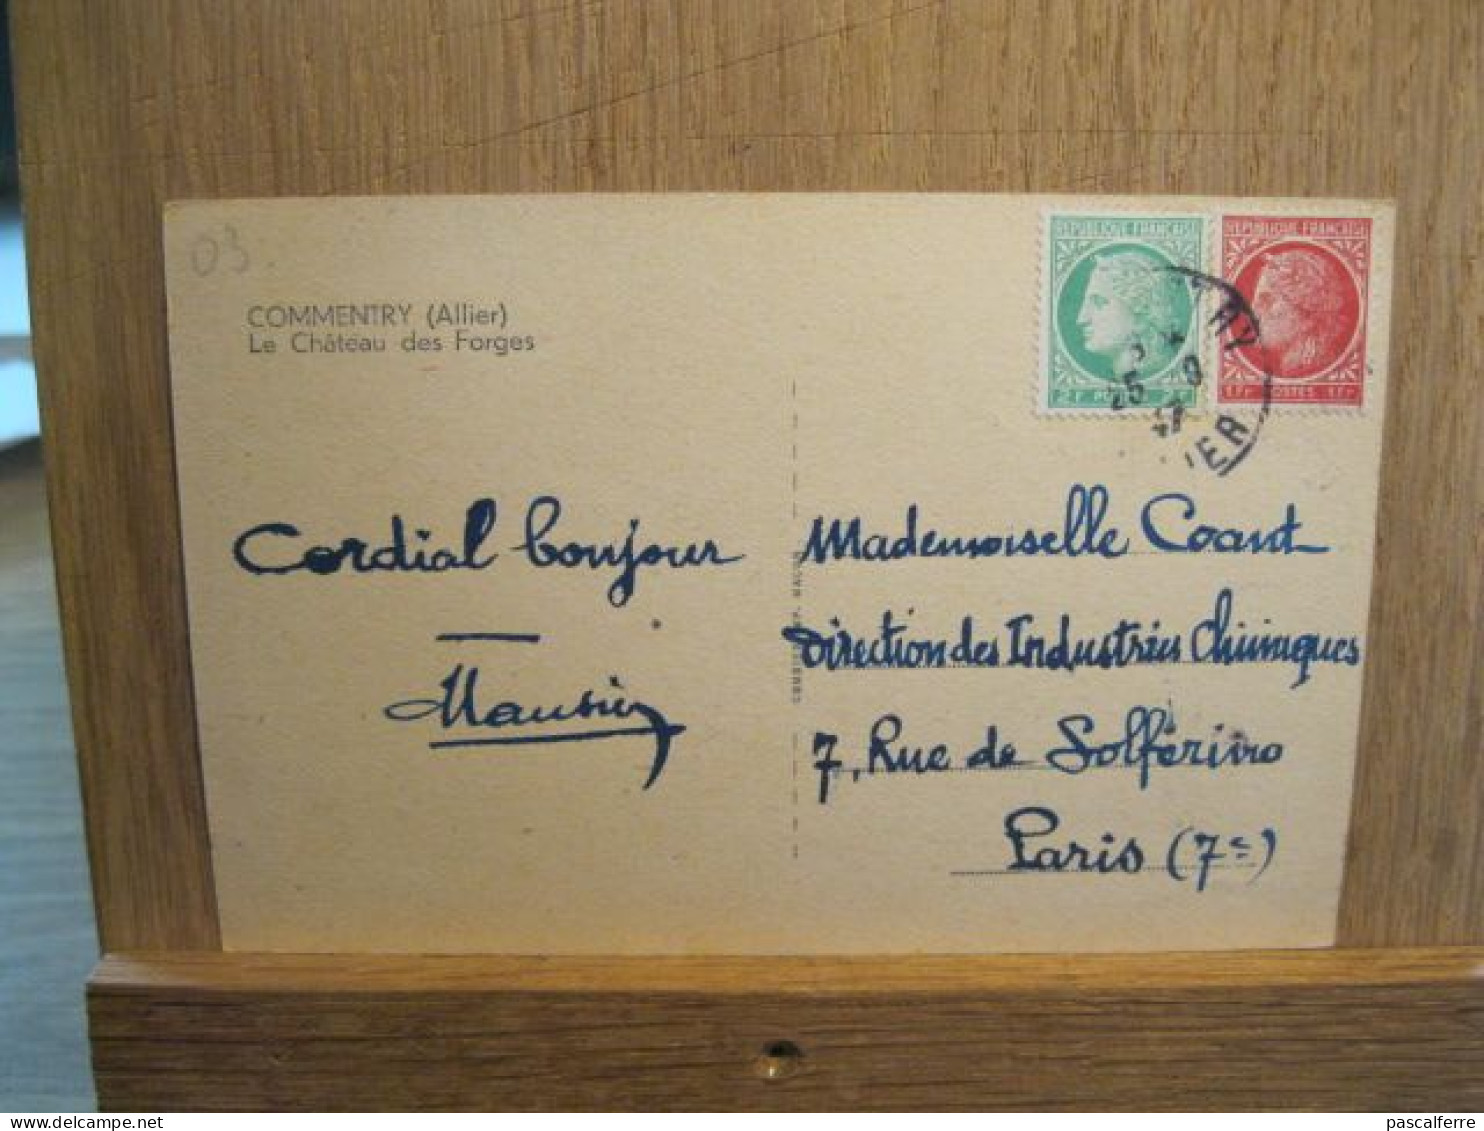 03
COMMENTRY (Allier)
Le Château des Forges
REPUBLIQUE FRANÇAISE
2F POSTES 2F
REPUBLIQUE FRANÇAISE
1Fr POSTES 1Fr
25 9
47
Cordial bonjour
Mademoiselle Coant
Direction des Industries Chimiques
7, Rue de Solférino
Paris (7e)
pascalferre